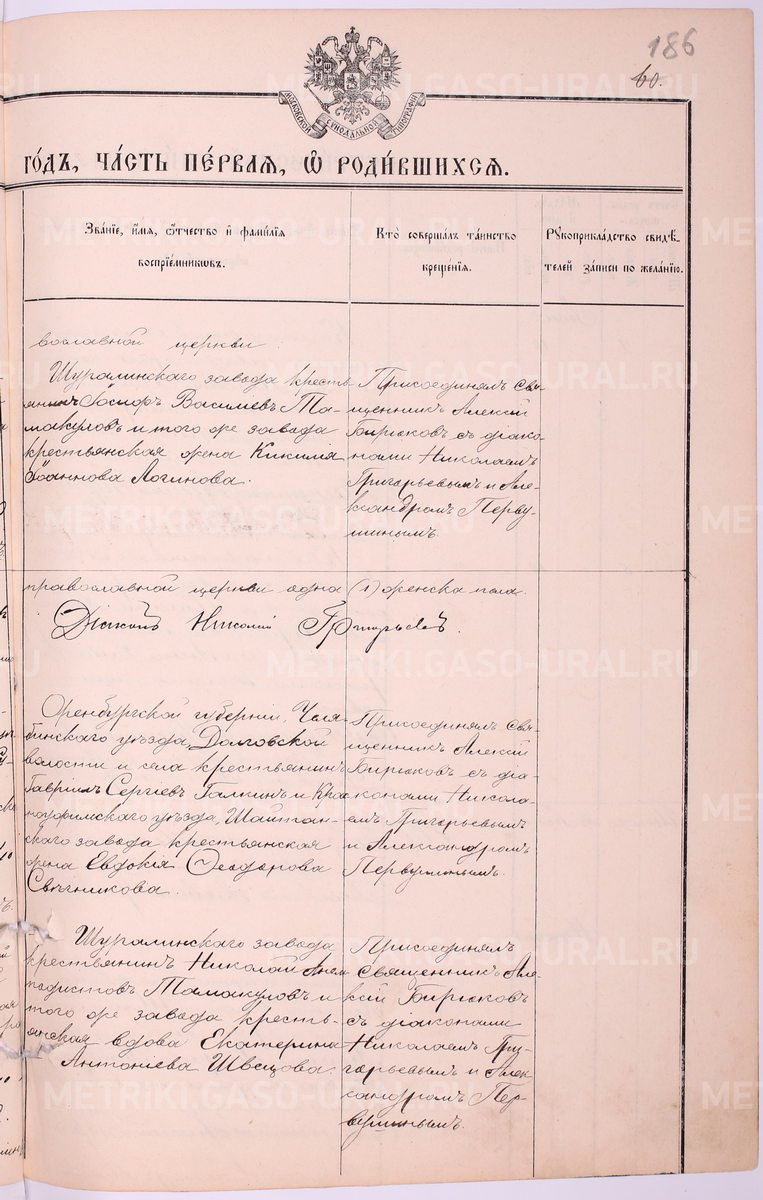 186
60.
МОСКОВСКОЙ СѴНОДАЛЬНОЙ ТИПОГРАФІИ
ГО́ДЪ, ЧА́СТЬ ПЕ́РВАѦ, Ѡ҆ РОДИ́ВШИХСѦ.
Зва́нїе, и҆́мѧ, ѻ҆́тчество и҆ фами́лїѧ
воспрїе́мникѡвъ.
Кто̀ соверша́лъ та́инство
креще́нїѧ.
Рꙋкоприкла́дство свидѣ́-
телей за́писи по жела́нїю.
вославной церкви.
Шуралинскаго завода кресть-
янинъ Іосифъ Василіевъ Та-
макуловъ и того же завода
крестьянская жена Кикилія
Іоаннова Логинова.
Присоединялъ свя-
щенникъ Алексій
Бирюковъ съ діако-
нами Николаемъ
Григорьевымъ и Але-
ксандромъ Перву-
шинымъ.
православной церкви одна (1) женска пола.
Діаконъ Николай Григорьевъ.
Оренбургской губерніи, Челя-
бинскаго уѣзда, Долговской
волости и села крестьянинъ
Гавріилъ Сергіевъ Галкинъ и Крас
ноуфимскаго уѣзда, Шайтан-
скаго завода крестьянская
жена Евдокія Ѳеодорова
Свѣчникова.
Присоединялъ свя-
щенникъ Алексій
Бирюковъ съ діа-
конами Никола-
емъ Григорьевымъ
и Александромъ
Первушинымъ.
Шуралинскаго завода
крестьянинъ Николай Анем
подистовъ Тамакуловъ и
того же завода кресть-
янская вдова Екатерина
Антоніева Швецова.
Присоединялъ
священникъ Але-
ксій Бирюковъ
съ діаконами
Николаемъ Гри-
горьевымъ и Алек-
сандромъ Пер-
вушинымъ.
METRIKI.GASO-URAL.RU